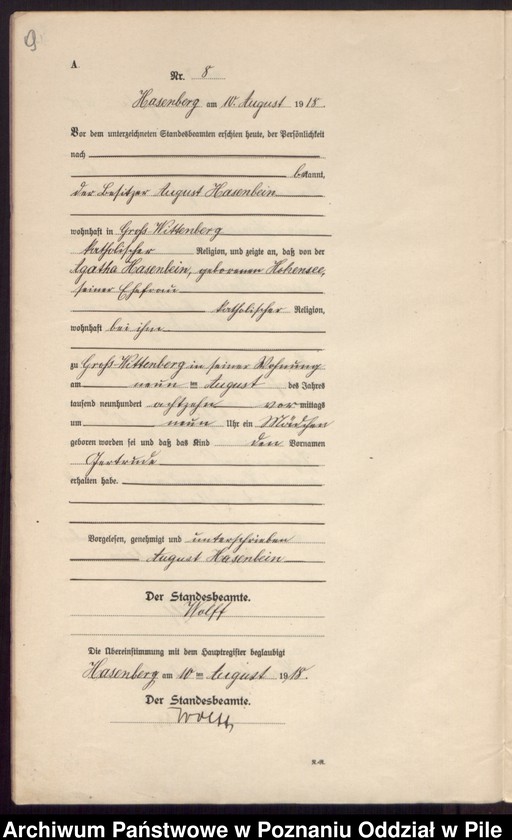 9
A.
Nr. 8
Hasenberg am 10. August 1918.
Vor dem unterzeichneten Standesbeamten erschien heute, der Persönlichkeit
nach
bekannt,
der Besitzer August Hasenbein
wohnhaft in Groß Wittenberg
katholischer Religion, und zeigte an, daß von der
Agatha Hasenbein, geborenen Hohensee,
seiner Ehefrau
katholischer Religion,
wohnhaft bei ihm
zu Groß-Wittenberg in seiner Wohnung
am neun ten August des Jahres
tausend neunhundert achtzehn vor mittags
um neun Uhr ein Mädchen
geboren worden sei und daß das Kind den Vornamen
Gertrude
erhalten habe.
Vorgelesen, genehmigt und unterschrieben
August Hasenbein
Der Standesbeamte.
Wolff
Die Übereinstimmung mit dem Hauptregister beglaubigt
Hasenberg am 10 ten August 1918.
Der Standesbeamte.
Wolff
Archiwum Państwowe w Poznaniu Oddział w Pile